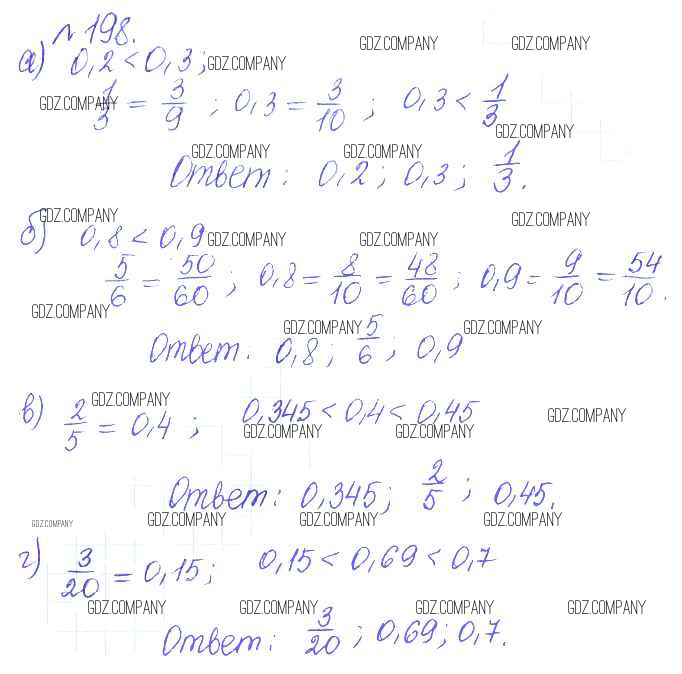 №198.
GDZ.COMPANY GDZ.COMPANY
а) 0,2 < 0,3; GDZ.COMPANY
GDZ.COMPANY 1/3 = 3/9 ; 0,3 = 3/10 ; 0,3 < 1/3
GDZ.COMPANY
GDZ.COMPANY GDZ.COMPANY
Ответ: 0,2; 0,3; 1/3.
GDZ.COMPANY GDZ.COMPANY
б) 0,8 < 0,9 GDZ.COMPANY GDZ.COMPANY
5/6 = 50/60 ; 0,8 = 8/10 = 48/60 ; 0,9 = 9/10 = 54/10.
GDZ.COMPANY
GDZ.COMPANY GDZ.COMPANY
Ответ. 0,8; 5/6; 0,9
GDZ.COMPANY
в) 2/5 = 0,4; 0,345 < 0,4 < 0,45 GDZ.COMPANY
GDZ.COMPANY GDZ.COMPANY
Ответ: 0,345; 2/5; 0,45.
GDZ.COMPANY GDZ.COMPANY GDZ.COMPANY GDZ.COMPANY
г) 3/20 = 0,15; 0,15 < 0,69 < 0,7
GDZ.COMPANY GDZ.COMPANY GDZ.COMPANY GDZ.COMPANY
Ответ: 3/20; 0,69; 0,7.